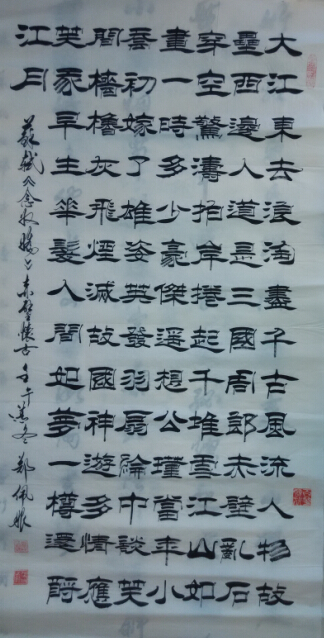 大江東去浪淘盡千古風流人物故
壘西邊人道是三國周郎赤壁亂石
穿空驚濤拍岸捲起千堆雪江山如
畫一時多少豪傑遙想公瑾當年小
喬初嫁了雄姿英發羽扇綸巾談笑
間檣櫓灰飛煙滅故國神遊多情應
笑我早生華髮人間如夢一樽還酹
江月
蘇軾念奴嬌赤壁懷古 冬 鄭佩